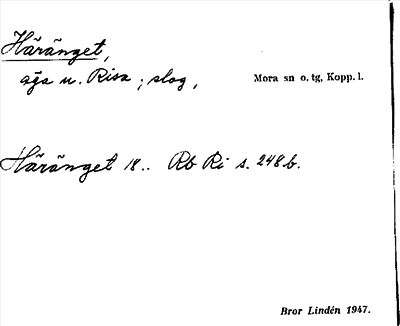 Häränget,
äga u. Risa ; slog,
Mora sn o. tg, Kopp. l.
Häränget 18.. Rb Ri s. 248 b.
Bror Lindén 1947.